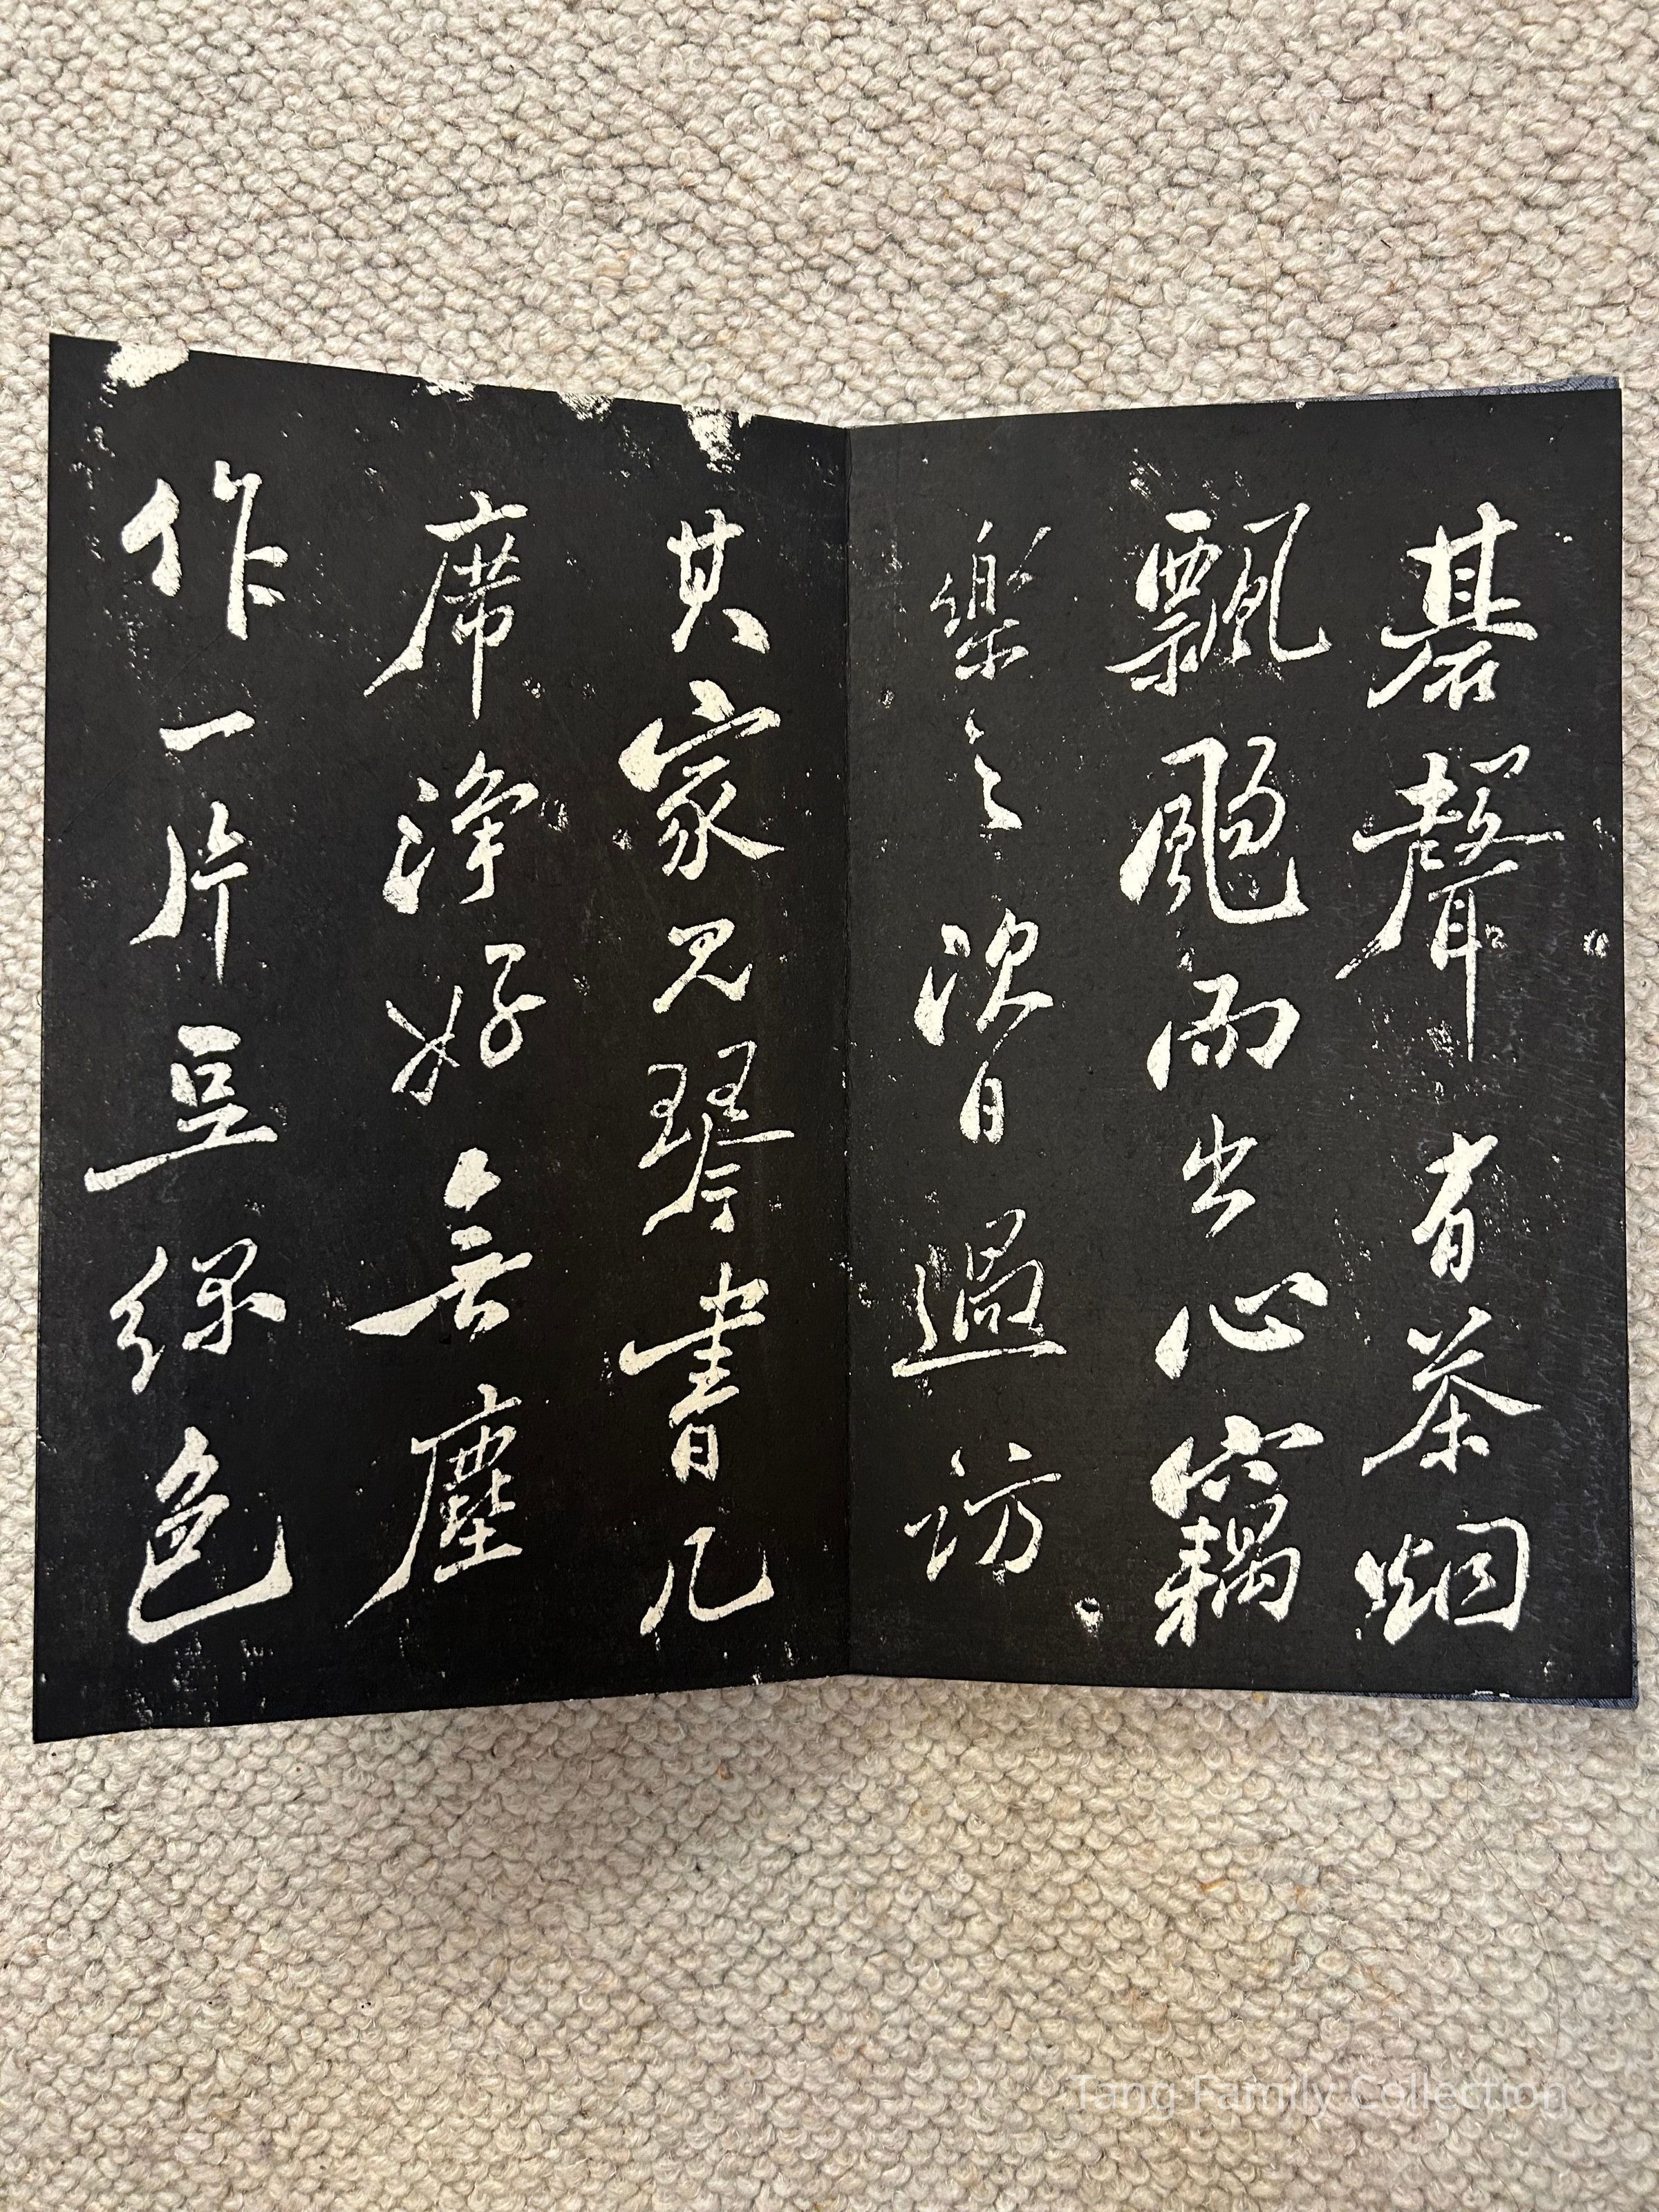 碁聲有茶烟
飄颺而出心竊
樂之次日過訪
其家見琴書几
席淨好無塵
作一片豆綠色
Tang Family Collection